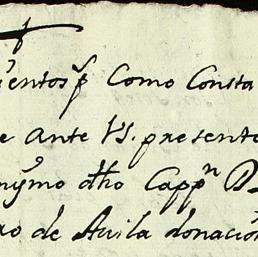 entos p Como Consta
e ante VS. presento
nymo dho Cappn D
ro de Auila donación